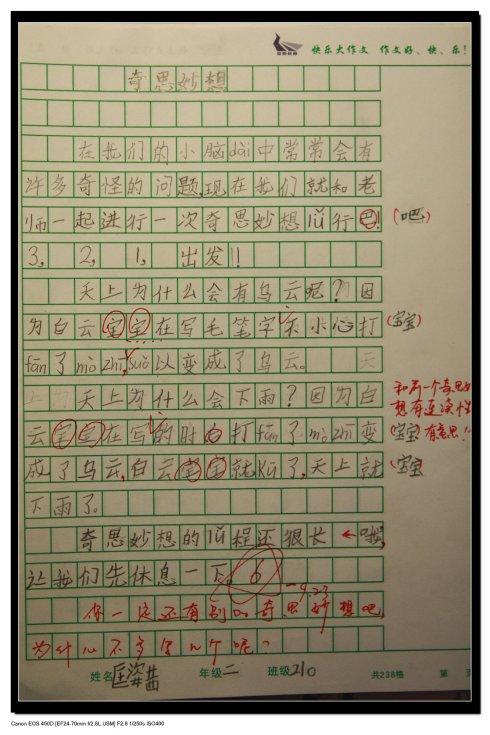 快乐大作文 作文好、快、乐!
奇思妙想
在我们的小脑dài中常常会有
许多奇怪的问题,现在我们就和老
师一起进行一次奇思妙想lǚ行巴! (吧)
3, 2, 1, 出发!!
天上为什么会有乌云呢?因
为白云宝宝在写毛笔字不小心打 (宝宝)
fān了mò zhī,suǒ以变成了乌云。
天上为什么会下雨?因为白
和前一个奇思妙
想有连续性
云宝宝在写的时口打fān了mò zhī变 (宝宝) 有意思!
成了乌云,白云宝宝就kū了,天上就 (宝宝)
下雨了。
奇思妙想的lǚ程还很长 哦,
让我们先休息一下。
9.23
你一定还有别的奇思妙想吧,
为什么不多写几个呢?
姓名 年级二 班级210 共238格 第 页
Canon EOS 450D [EF24-70mm f/2.8L USM] F2.8 1/250s ISO400